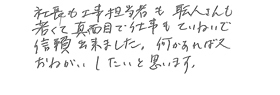 社長も工事担当者も職人さんも
若くて真面目で仕事もていねいで
信頼出来ました。何かあれば又
おねがいしたいと思います。